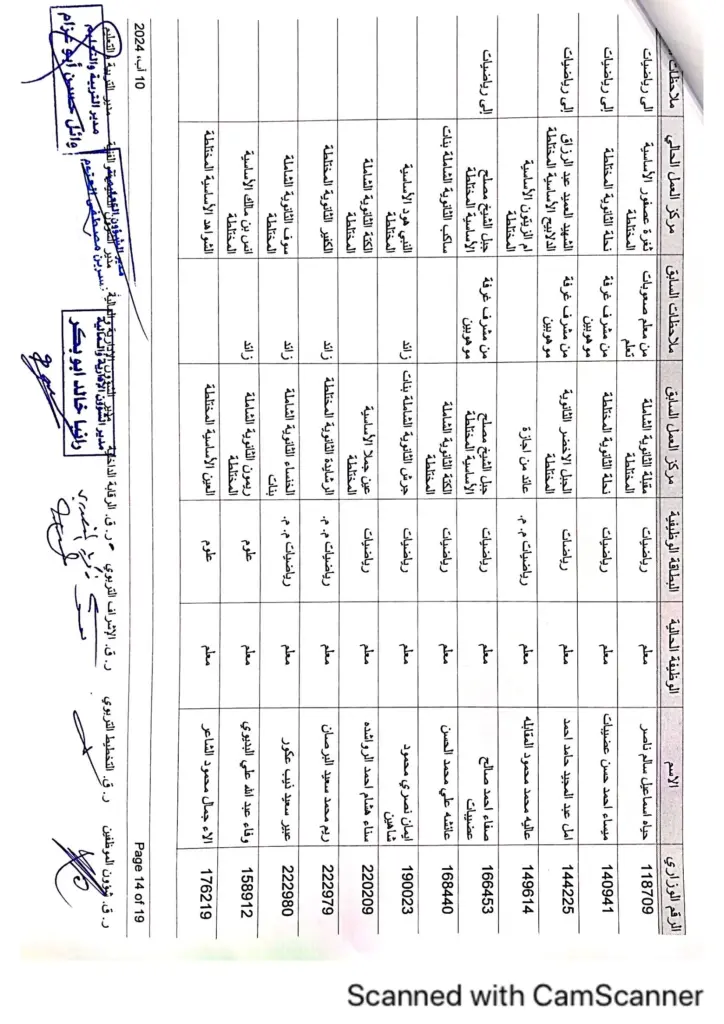 الرقم الوزاري | الاسم | الوظيفة الحالية | البطاقة الوظيفية | مركز العمل السابق | ملاحظات السابق | مركز العمل الحالي | ملاحظات
118709 | حياه اسماعيل سالم ناصر | معلم | رياضيات | مقبلة الثانوية الشاملة المختلطة | من معلم صعوبات تعلم | ثغرة عصفور الأساسية المختلطة | الى رياضيات
140941 | ميساء احمد حسن عضيبات | معلم | رياضيات | نحلة الثانوية المختلطة | من مشرف غرفة موهوبين | نحلة الثانوية المختلطة | إلى رياضيات
144225 | امل عبد المجيد حامد احمد | معلم | رياضات | الجبل الاخضر الثانوية المختلطة | من مشرف غرفة موهوبين | الشهيد العميد عبد الرزاق الدلابيح الأساسية المختلطة | إلى رياضيات
149614 | عاليه محمد محمود المقابله | معلم | رياضيات م. م. | عائد من اجازة | ام الزيتون الأساسية المختلطة
166453 | صفاء احمد صالح عضيبات | معلم | رياضيات | جبل الشيخ مصلح الأساسية المختلطة | من مشرف غرفة موهوبين | جبل الشيخ مصلح الأساسية المختلطة | إلى رياضيات
168440 | عائشه علي محمد الحسن | معلم | رياضيات | الكتة الثانوية الشاملة المختلطة | ساكب الثانوية الشاملة بنات
190023 | ايمان نصري محمود شاهين | معلم | رياضيات | جرش الثانوية الشاملة بنات | زائد | النبي هود الأساسية المختلطة
220209 | سناء هشام احمد الرواشده | معلم | رياضيات | عين جملا الأساسية المختلطة | الكتة الثانوية الشاملة المختلطة
222979 | ريم محمد سعيد البرصان | معلم | رياضيات م. م. | الرشايدة الثانوية المختلطة | زائد | الكفير الثانوية المختلطة
222980 | عبير سعيد ذيب عكور | معلم | رياضيات م. م. | الخنساء الثانوية الشاملة بنات | زائد | سوف الثانوية الشاملة المختلطة
158912 | وفاء عبد الله علي البديوي | معلم | علوم | ريمون الثانوية الشاملة المختلطة | زائد | انس بن مالك الأساسية المختلطة
176219 | الاء جمال محمود الشاعر | معلم | علوم | العين الأساسية المختلطة | الشواهد الأساسية المختلطة
Page 14 of 19
10 آب، 2024
ر. ق. شؤون الموظفين
ر. ق. التخطيط التربوي
ر. ق. الإشراف التربوي
ر. ق. الرقابة الداخلية
مدير الشؤون الإدارية والمالية
مدير التربية والتعليم
مدير الشؤون الإدارية والمالية
رانيا خالد ابو بكر
مدير الشؤون التعليمية
مدير التربية والتعليم
وائل حسين أبو عزام
Scanned with CamScanner